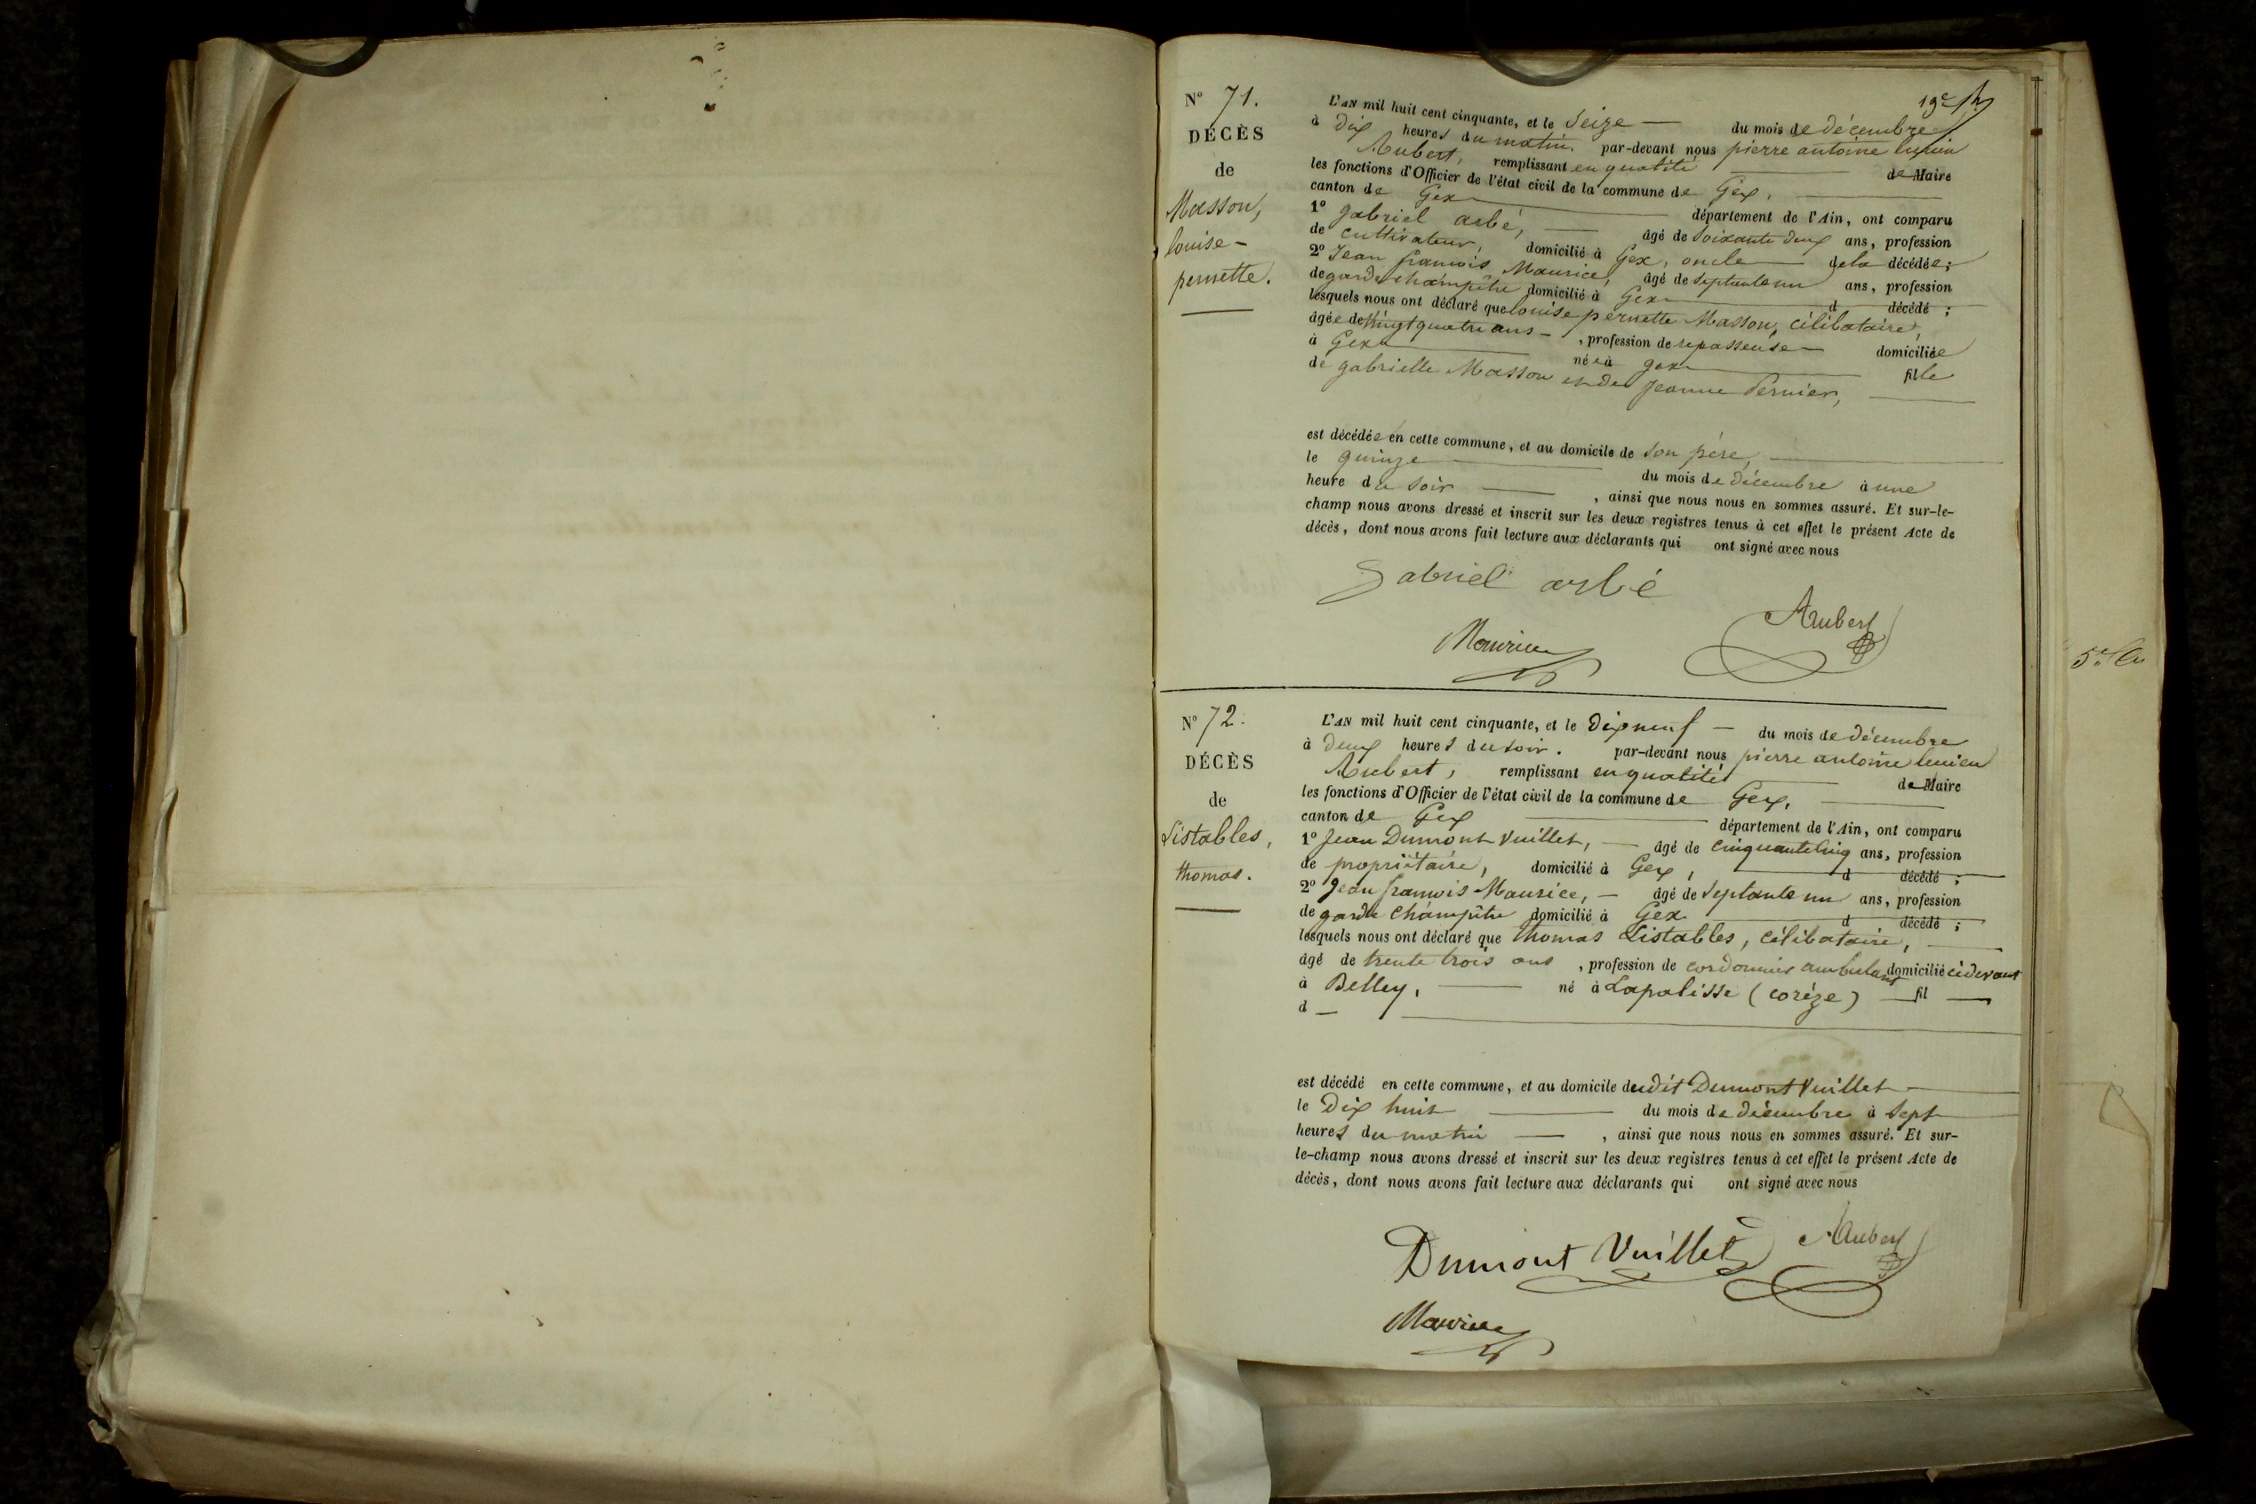 19e
N° 71.
DÉCÈS
de
Masson,
louise-
pernette.
L'AN mil huit cent cinquante, et le Seize du mois de décembre
à Dix heures du matin. par-devant nous pierre antoine lucien
Aubert, remplissant en qualité de Maire
les fonctions d'Officier de l'état civil de la commune de Gex,
canton de Gex département de l'Ain, ont comparu
1° gabriel arbé, âgé de Soixante deux ans, profession
de cultivateur, domicilié à Gex, oncle de la décédée;
2° Jean francois Maurice, âgé de Septante un ans, profession
de garde champêtre domicilié à Gex d décédé ;
lesquels nous ont déclaré que louise pernette Masson, célibataire,
âgée de Vingt quatre ans , profession de repasseuse domiciliée
à Gex née à gex fille
de gabrielle Masson et de Jeanne Pernier,
est décédée en cette commune, et au domicile de son père,
le quinze du mois de décembre à une
heure du soir , ainsi que nous nous en sommes assuré. Et sur-le-
champ nous avons dressé et inscrit sur les deux registres tenus à cet effet le présent Acte de
décès, dont nous avons fait lecture aux déclarants qui ont signé avec nous
Gabriel arbé
Aubert
Maurice
N° 72.
DÉCÈS
de
Listables,
thomas.
L'AN mil huit cent cinquante, et le Dix neuf du mois de décembre
à Deux heures du soir. par-devant nous pierre antoine lucien
Aubert, remplissant en qualité de Maire
les fonctions d'Officier de l'état civil de la commune de Gex,
canton de Gex département de l'Ain, ont comparu
1° Jean Dumont Vuillet, âgé de cinquante cinq ans, profession
de propriétaire, domicilié à Gex, d décédé ;
2° Jean francois Maurice, âgé de Septante un ans, profession
de garde Champêtre domicilié à Gex d décédé ;
lesquels nous ont déclaré que thomas Listables, célibataire,
âgé de trente trois ans , profession de cordonnier ambulant domicilié cidevant
à Belley, né à Lapalisse (corèze) fil
d
est décédé en cette commune, et au domicile dudit Dumont Vuillet
le Dix huit du mois de décembre à Sept
heures du matin , ainsi que nous nous en sommes assuré. Et sur-
le-champ nous avons dressé et inscrit sur les deux registres tenus à cet effet le présent Acte de
décès, dont nous avons fait lecture aux déclarants qui ont signé avec nous
Dumont Vuillet Aubert
Maurice